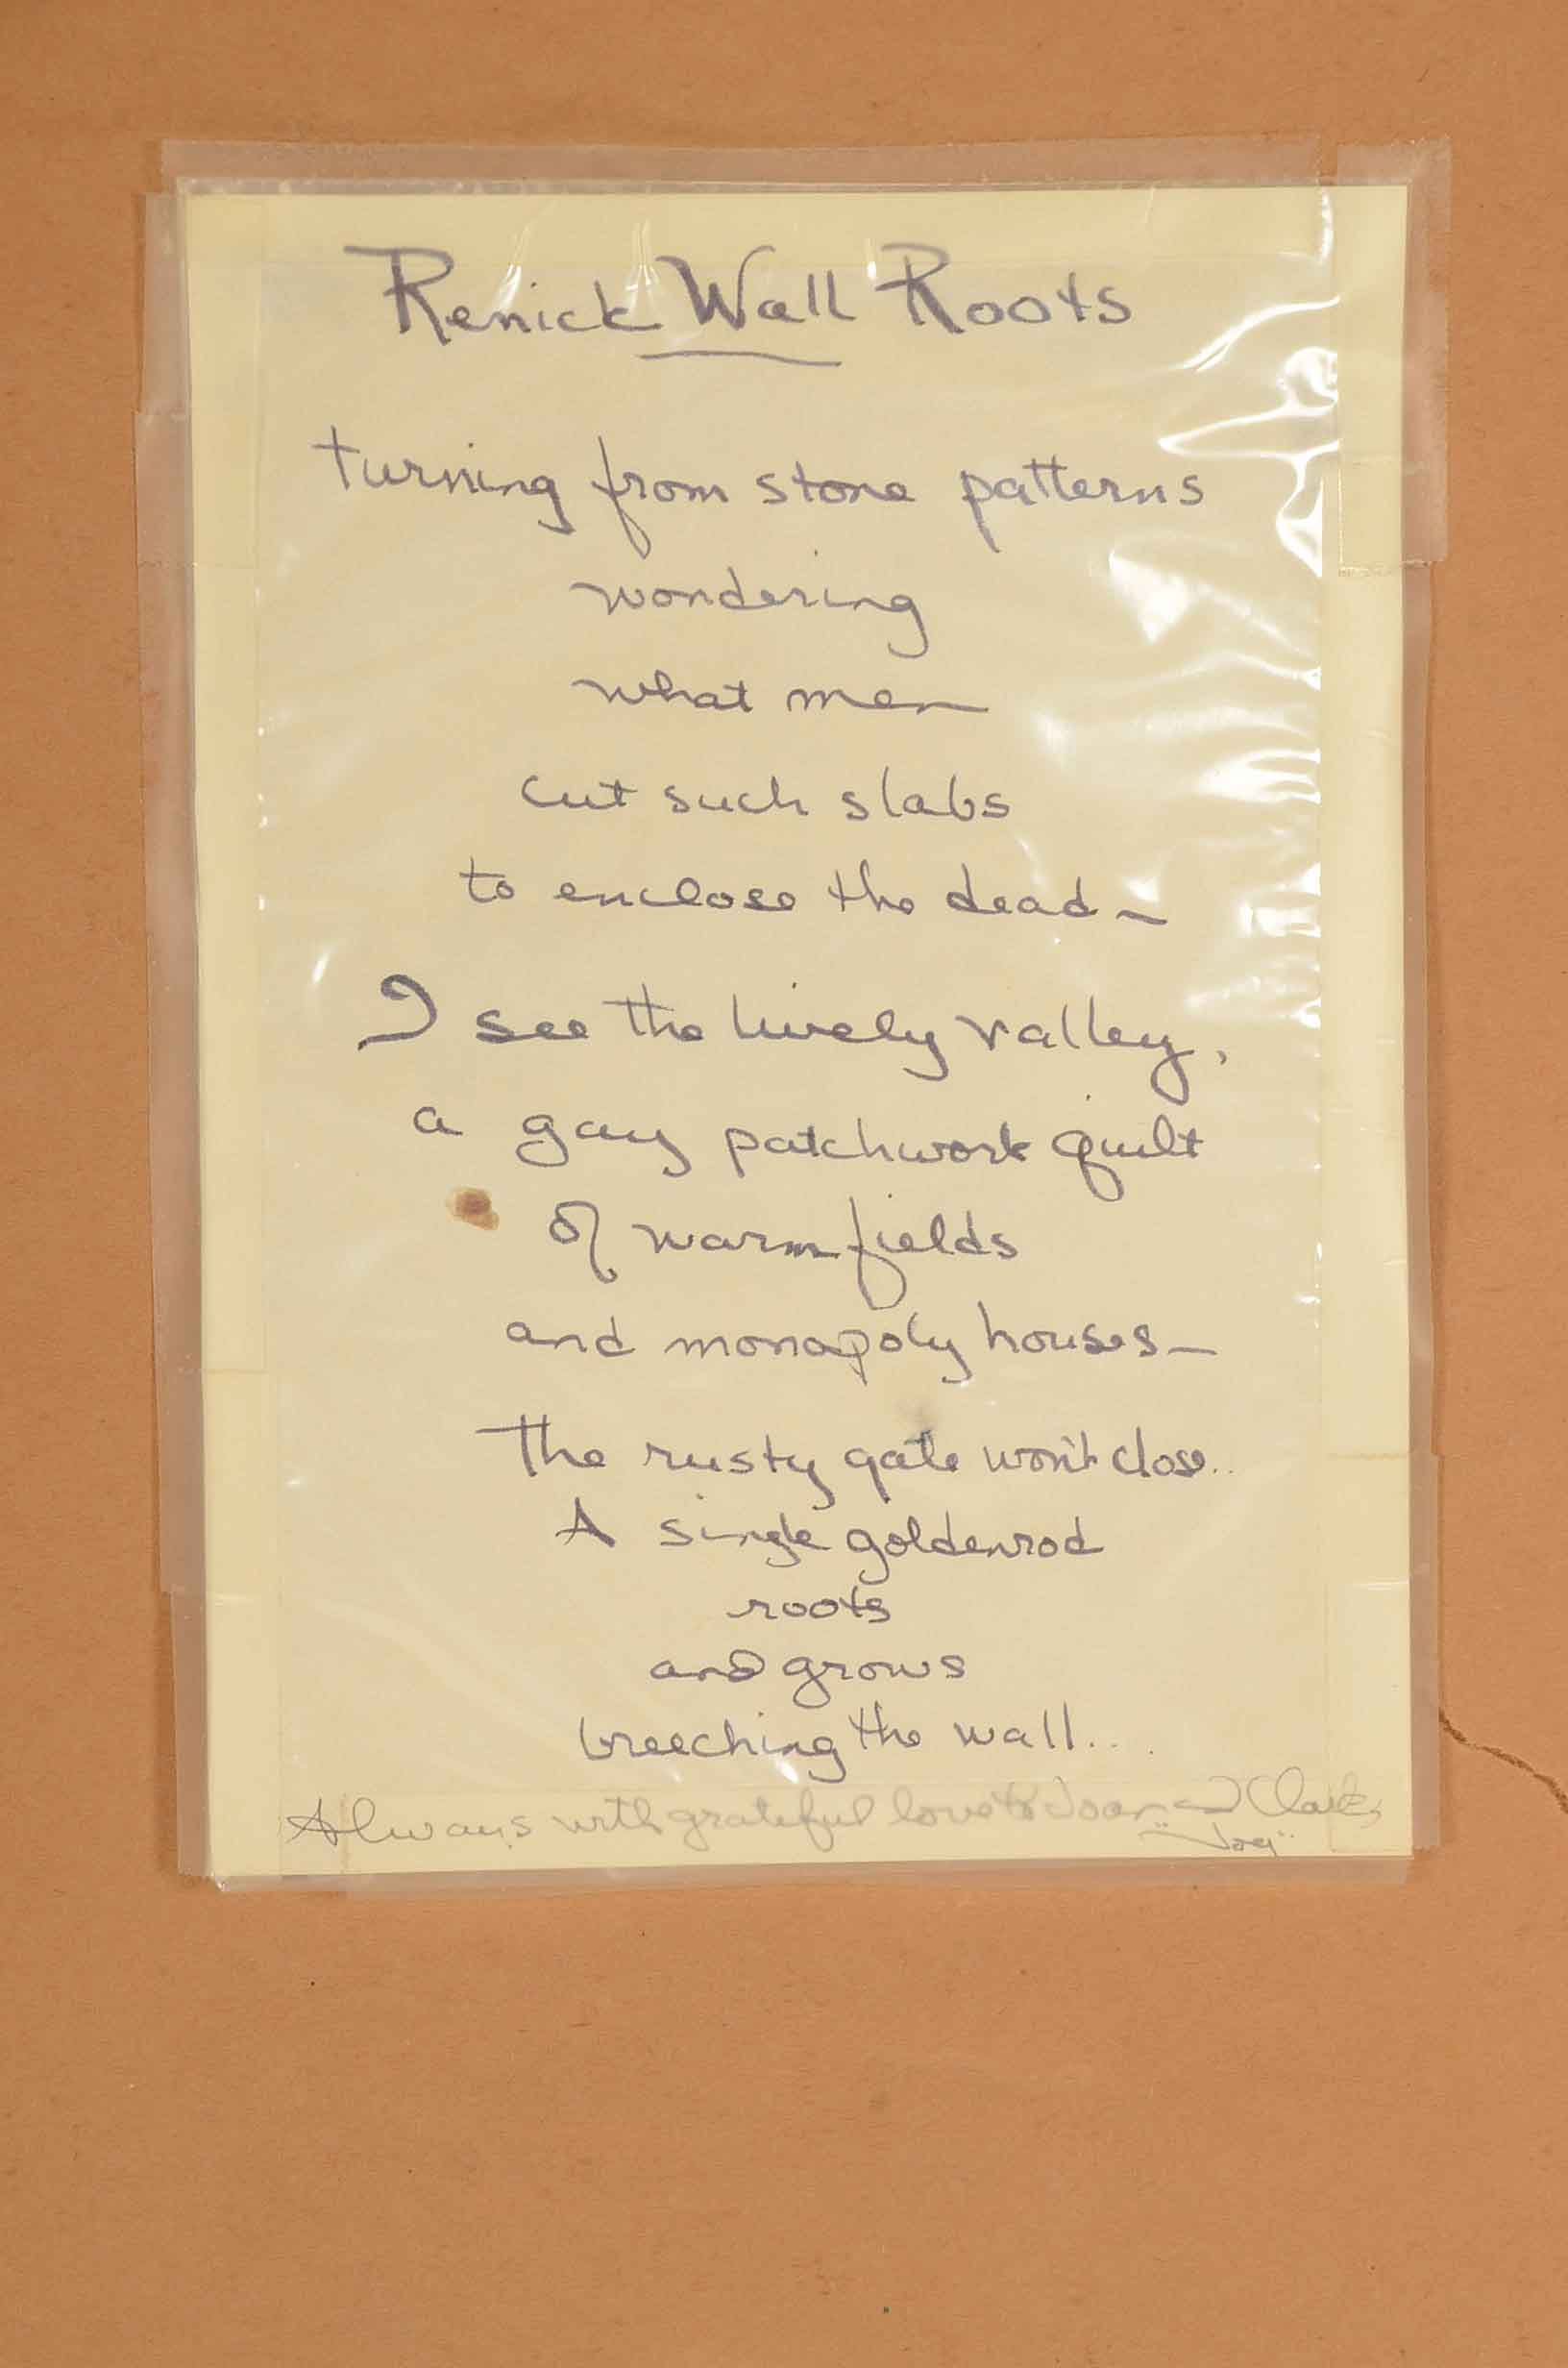 Renick Wall Roots
turning from stone patterns
wondering
what men
cut such slabs
to enclose the dead –
I see the lively valley,
a gay patchwork quilt
of warm fields
and monopoly houses –
The rusty gate won't close..
A single goldenrod
roots
and grows
breeching the wall...
Always with grateful love to Joan